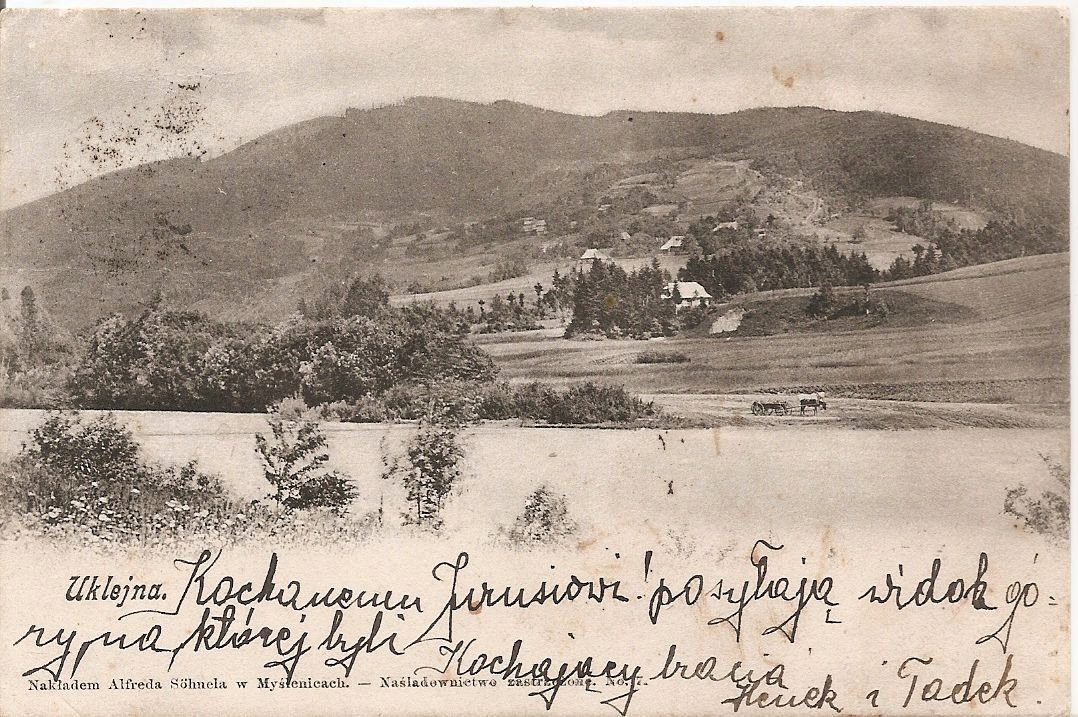 Uklejna. Kochanemu Jurusiowi! posyłają widok gó-
ry, na której byli
Kochający bracia
Henek i Tadek.
Nakładem Alfreda Söhnela w Myślenicach. — Naśladownictwo zastrzeżone. No. 7.